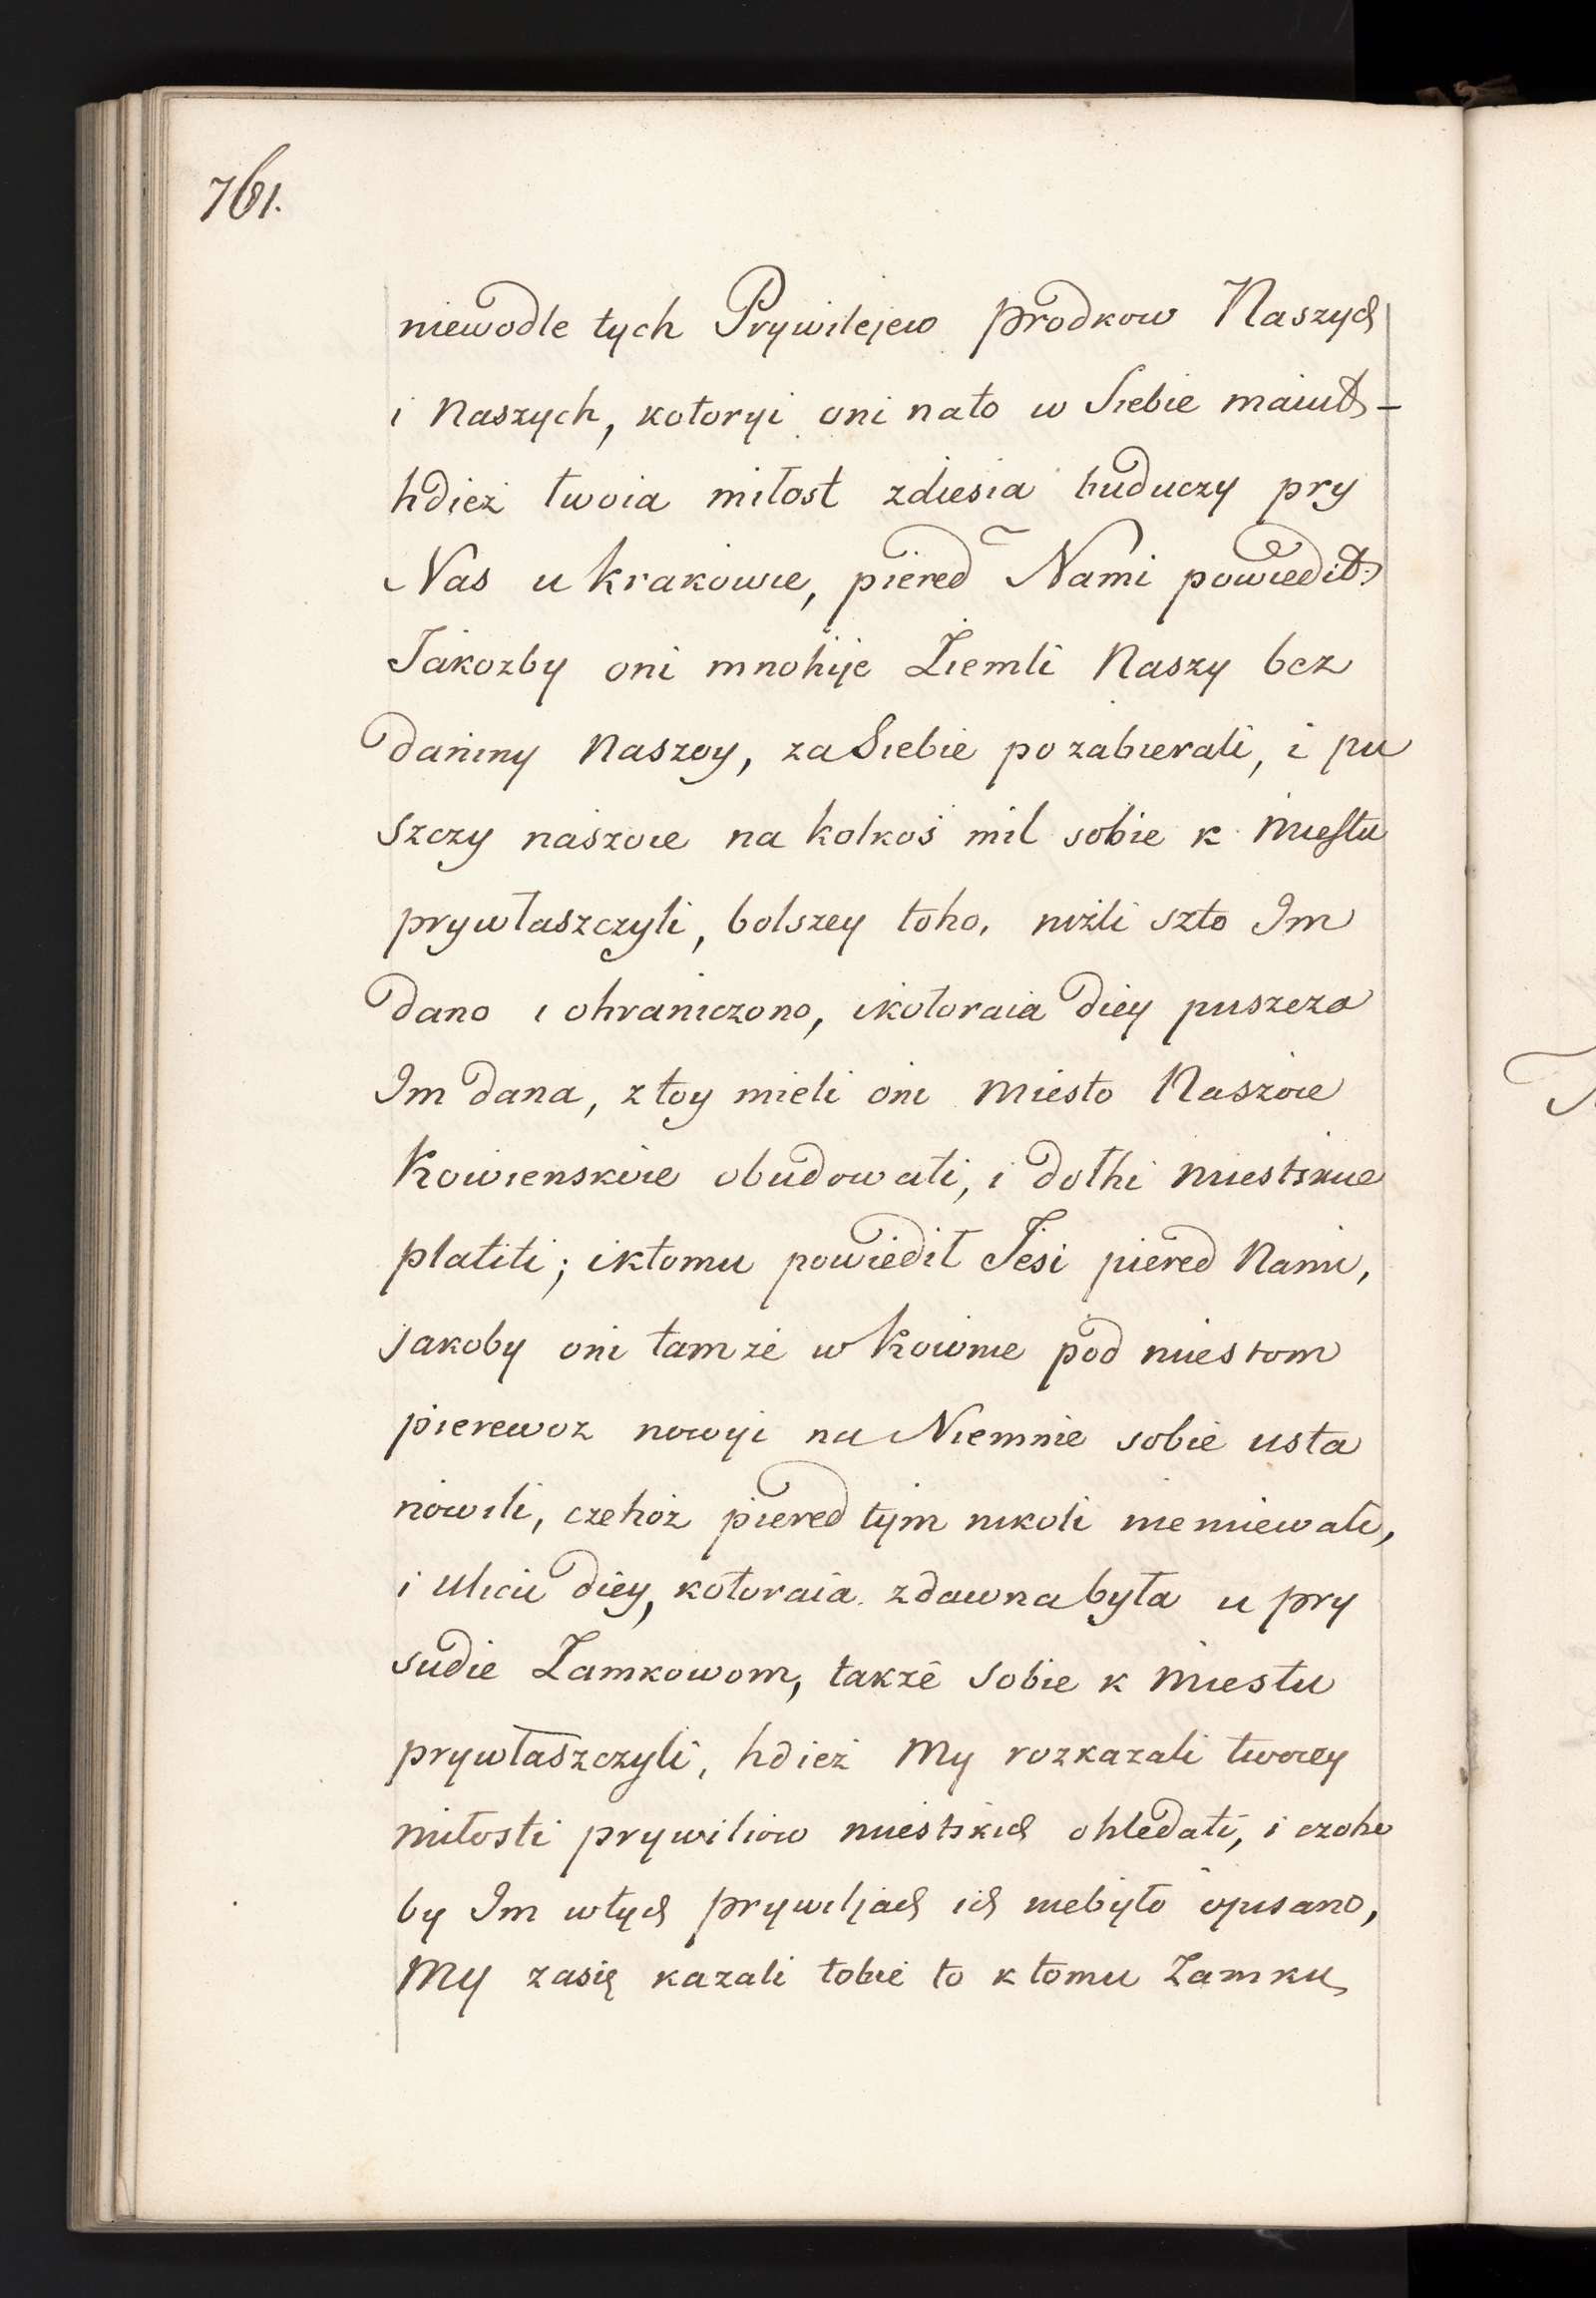 761.
niewodle tych Prywilejew prodkow Naszych
i Naszych, kotoryi oni nato w Siebie maiut –
hdież twoia miłost zdiesia buduczy pry
Nas u Krakowie, piered Nami powiedił:
Jakozby oni mnohije Ziemli Naszy bez
daniny Naszoy, za Siebie pozabierali, i pu
szczy naszoie na kolkoś mil sobie k miestu
prywłaszczyli, bolszey toho, niżli szto Im
dano i ohraniczono, ikotoraia diey puszcza
Im dana, z toy mieli oni miesto Naszoie
Kowienskoie obudowati, i dołhi miestskie
płatiti; iktomu powiedił Jesi piered Nami,
jakoby oni tamże w Kownie pod miestom
pierewoz nowyi na Niemnie sobie usta
nowili, czehoż piered tym nikoli niemiewali,
i Ulicu diey, kotoraia zdawna była u pry
sudie Zamkowom, także sobie k miestu
prywłaszczyli, hdież My rozkazali twoiey
miłosti prywiliow miestskich ohledati, i czoho
by Im wtych prywiljach ich niebyło opisano,
My zasię kazali tobie to k tomu Zamku